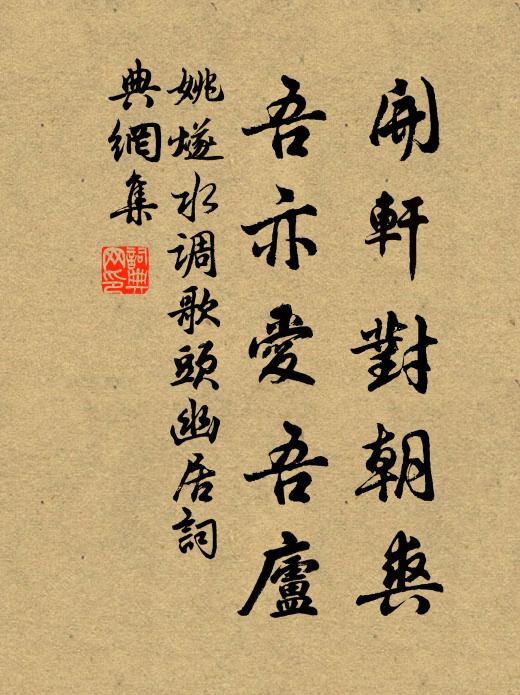 開軒對朝爽
吾亦愛吾廬
姚燧水调歌頭幽居詞
典網集
詞典网印